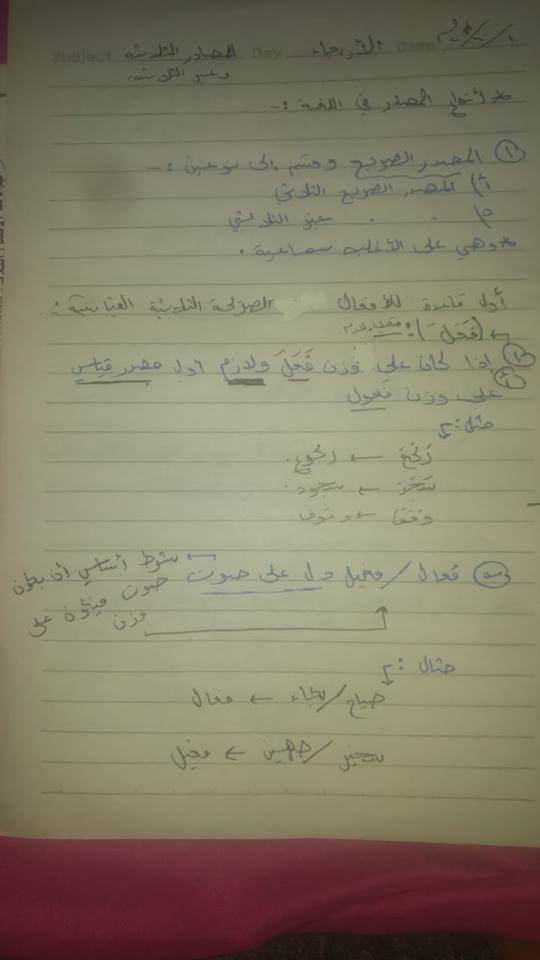 Subject المصادر الثلاثية Day الأربعاء Date
وغير الثلاثية
* أنواع المصدر في اللغة :-
① المصدر الصريح وقسم إلى نوعين :-
أ) المصدر الصريح الثلاثي
ب) " " غير الثلاثي
* وهي على الأغلب سماعية .
أول قاعدة للأفعال الصريحة الثلاثية القياسية :
← (فَعَلَ) :
① إذا كان على وزن فَعَلَ ولازم أول مصدر قياس
أ على وزن فعول
مثل :
رَكَعَ ← ركوع
سَجَدَ ← سجود
وقف ← وقوف
ب فُعال / فعيل دل على صوت ← شرط أساسي أن يكون
صوت فيكون على
وزن
مثال :
صياح / بكاء ← فعال
شخير / ← فعيل